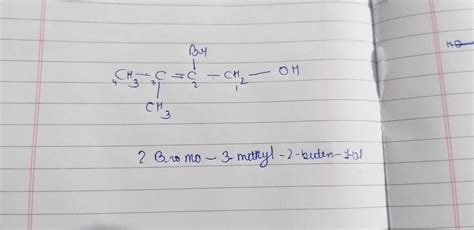 Br
CH3 — C = C — CH2 — OH
4 3 2 1
CH3
2 Bromo - 3 methyl - 2 - buten - 1 ol